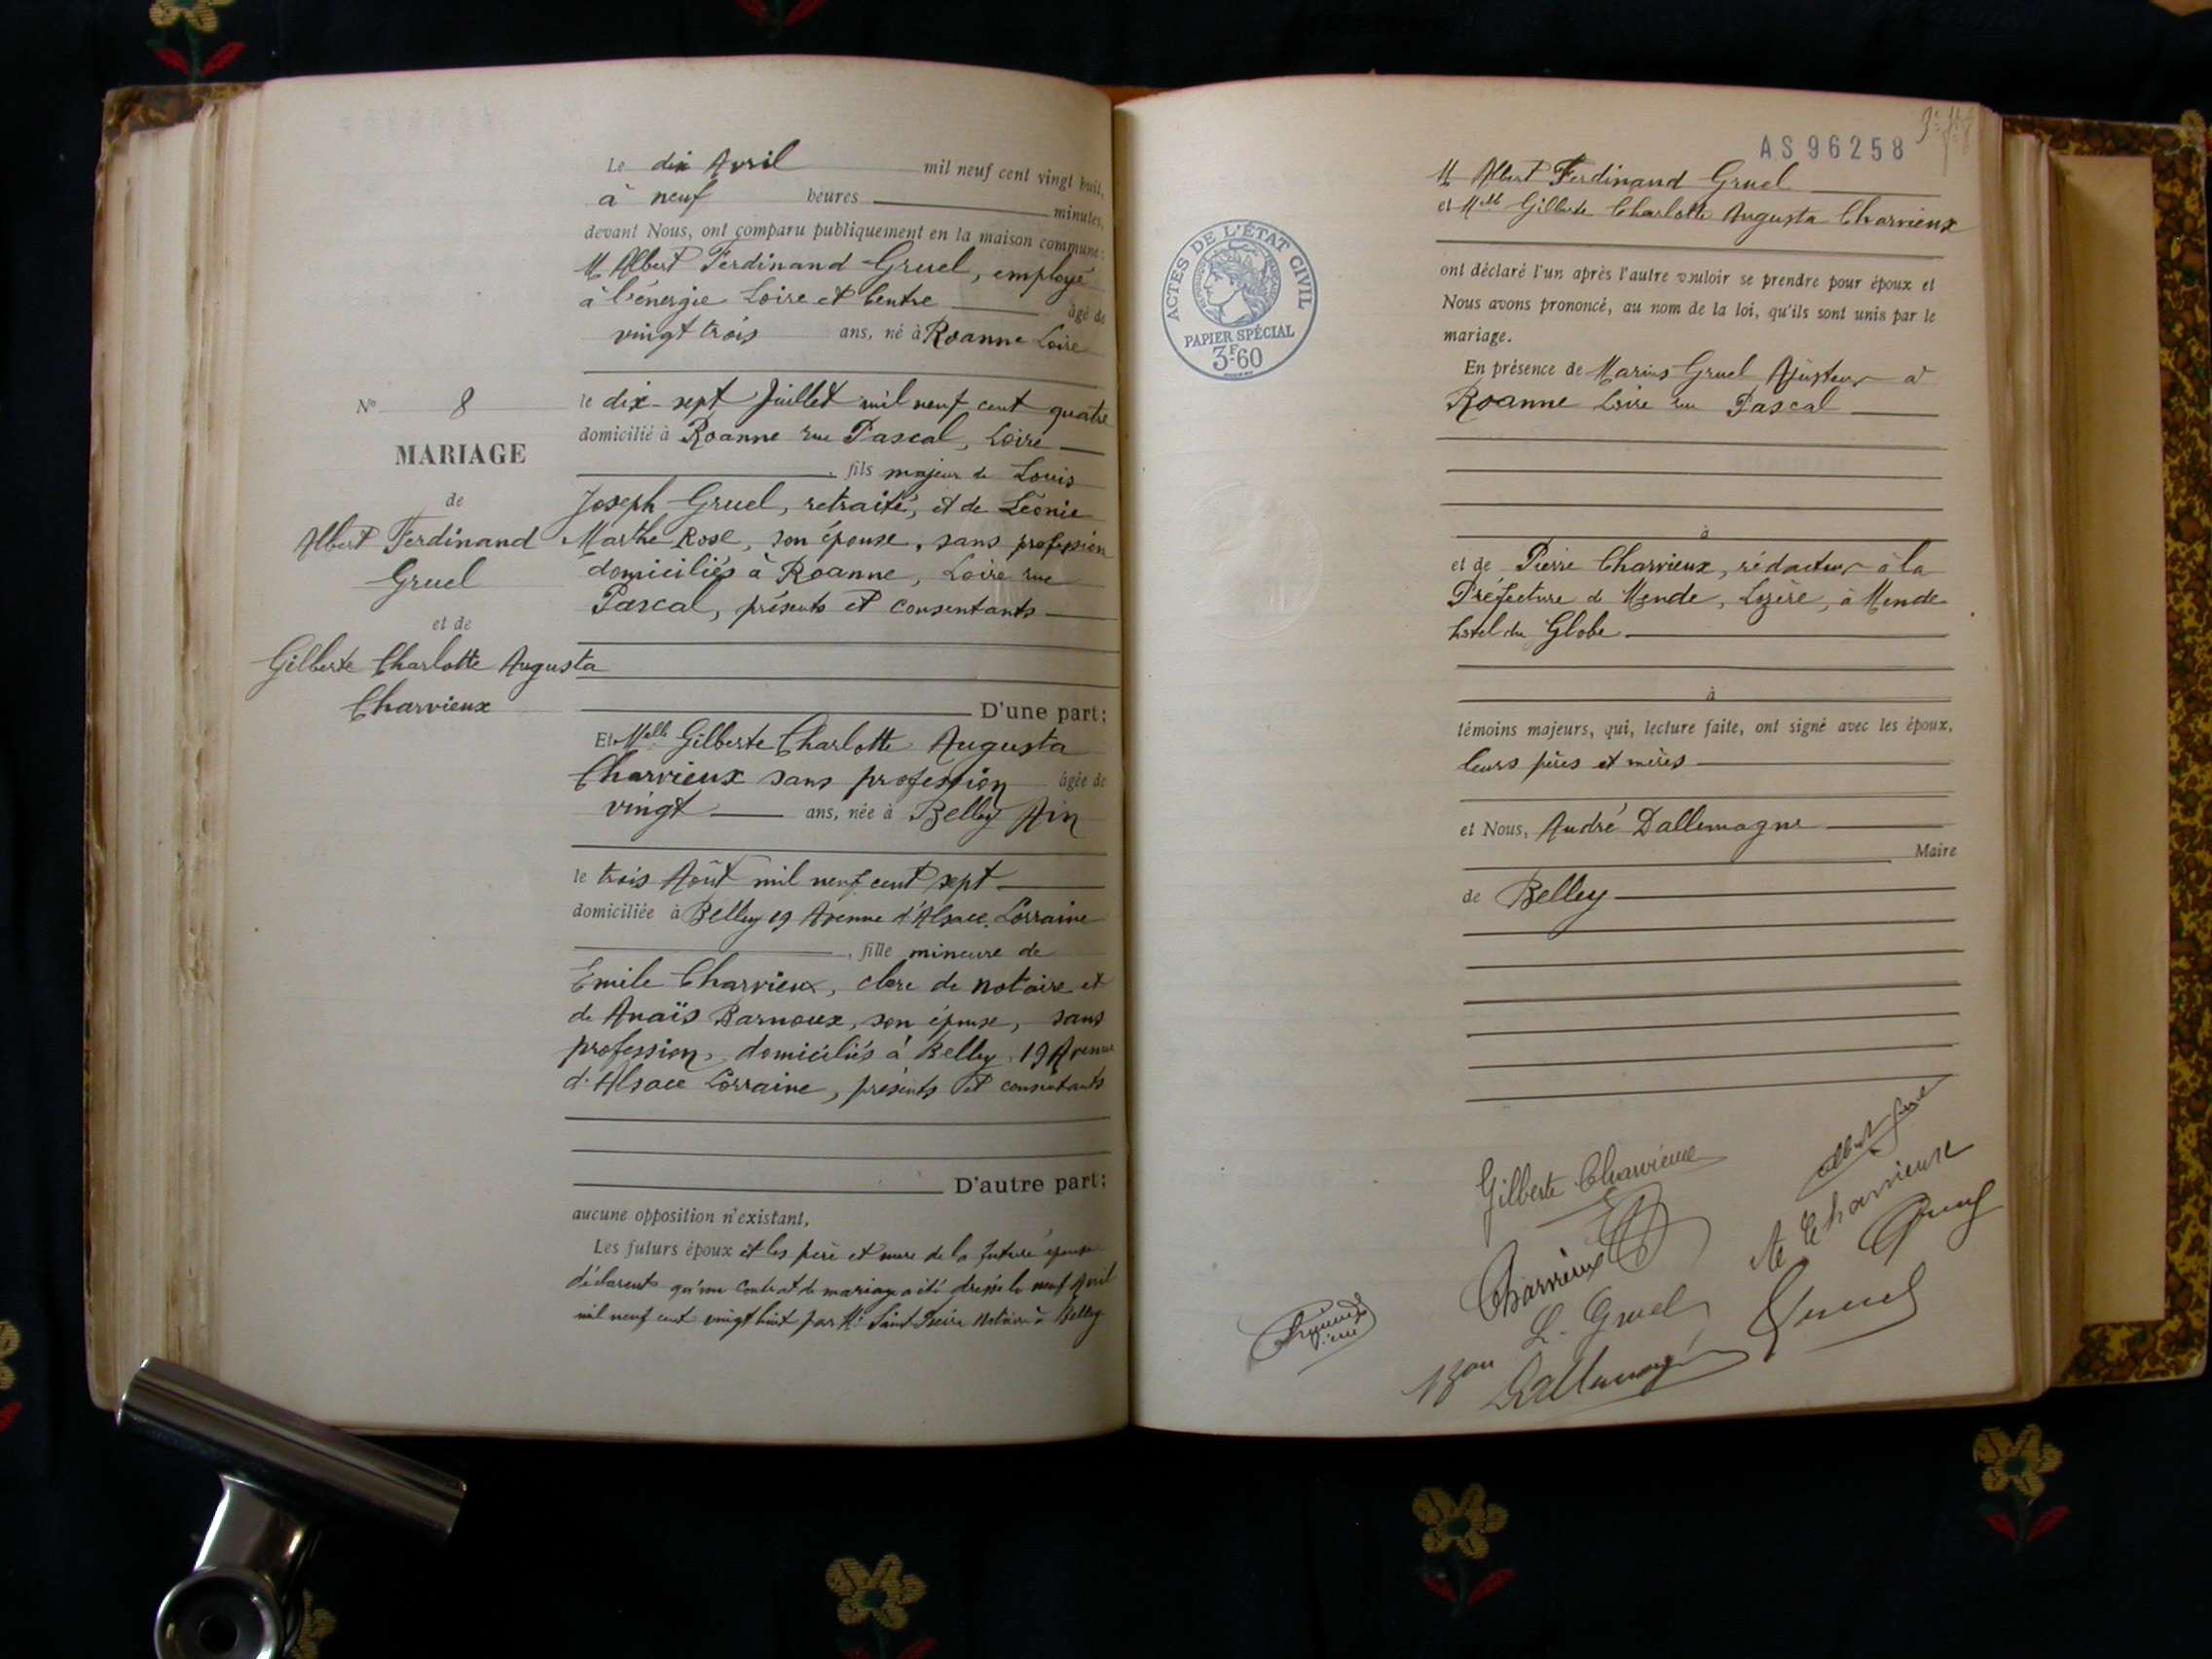 Le dix Avril mil neuf cent vingt huit,
à neuf heures minutes,
devant Nous, ont comparu publiquement en la maison commune :
M Albert Ferdinand Gruel, employé
à l'énergie Loire et Centre âgé de
vingt trois ans, né à Roanne Loire
le dix-sept Juillet mil neuf cent quatre
domicilié à Roanne rue Pascal, Loire
, fils majeur de Louis
Joseph Gruel, retraité, et de Léonie
Marthe Rose, son épouse, sans profession
domiciliés à Roanne, Loire rue
Pascal, présents et consentants
D'une part ;
Et Melle Gilberte Charlotte Augusta
Charvieux sans profession âgée de
vingt ans, née à Belley Ain
le trois Août mil neuf cent sept
domiciliée à Belley 19 Avenue d'Alsace Lorraine
, fille mineure de
Emile Charvieux, clerc de notaire et
de Anaïs Barnoux, son épouse, sans
profession, domiciliés à Belley, 19 Avenue
d'Alsace Lorraine, présents et consentants
D'autre part ;
aucune opposition n'existant,
Les futurs époux et les père et mère de la future épouse
déclarent qu'un contrat de mariage a été dressé le neuf Avril
mil neuf cent vingt huit par Me Saint Pierre Notaire à Belley
No 8
MARIAGE
de
Albert Ferdinand
Gruel
et de
Gilberte Charlotte Augusta
Charvieux
AS 96258
M Albert Ferdinand Gruel
et Melle Gilberte Charlotte Augusta Charvieux
ACTES DE L'ÉTAT CIVIL
PAPIER SPÉCIAL
3F.60
ont déclaré l'un après l'autre vouloir se prendre pour époux et
Nous avons prononcé, au nom de la loi, qu'ils sont unis par le
mariage.
En présence de Marius Gruel Ajusteur à
Roanne Loire rue Pascal
à
et de Pierre Charvieux, rédacteur à la
Préfecture de Mende, Lozère, à Mende
hotel du Globe
à
témoins majeurs, qui, lecture faite, ont signé avec les époux,
leurs pères et mères
et Nous, André Dallemagne
Maire
de Belley
Gilberte Charvieux
Albert Gruel
A Charvieux
Charvieux
Gruel
L. Gruel
Gruel
Bon Dallemagne